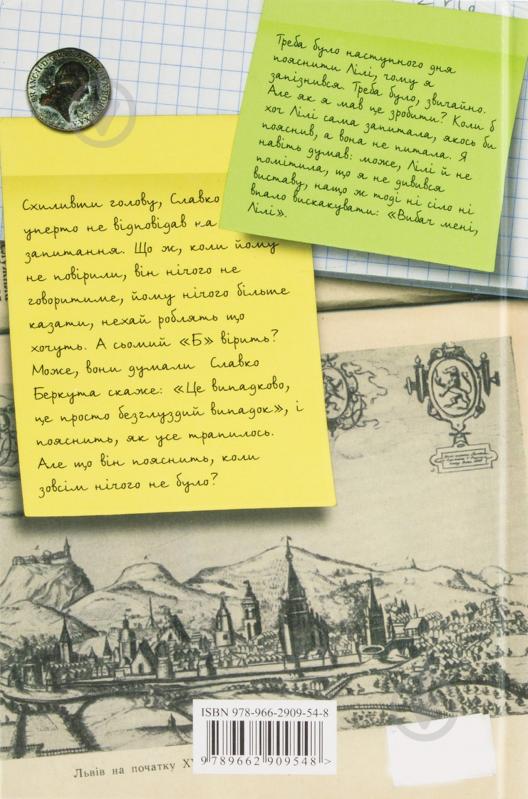 Треба було наступного дня
пояснити Лілі, чому я
запізнився. Треба було, звичайно.
Але як я мав це зробити? Коли б
хоч Лілі сама запитала, якось би
пояснив, а вона не питала. Я
навіть думав: може, Лілі й не
помітила, що я не дивився
виставу, нащо ж тоді ні сіло ні
впало вискакувати: «Вибач мені,
Лілі».
Схиливши голову, Славко
уперто не відповідав на
запитання. Що ж, коли йому
не повірили, він нічого не
говоритиме, йому нічого більше
казати, нехай роблять що
хочуть. А сьомий «Б» вірить?
Може, вони думали Славко
Беркута скаже: «Це випадково,
це просто безглуздий випадок», і
пояснить, як усе трапилось.
Але що він пояснить, коли
зовсім нічого не було?
ISBN 978-966-2909-54-8
9789662909548>
Львів на початку